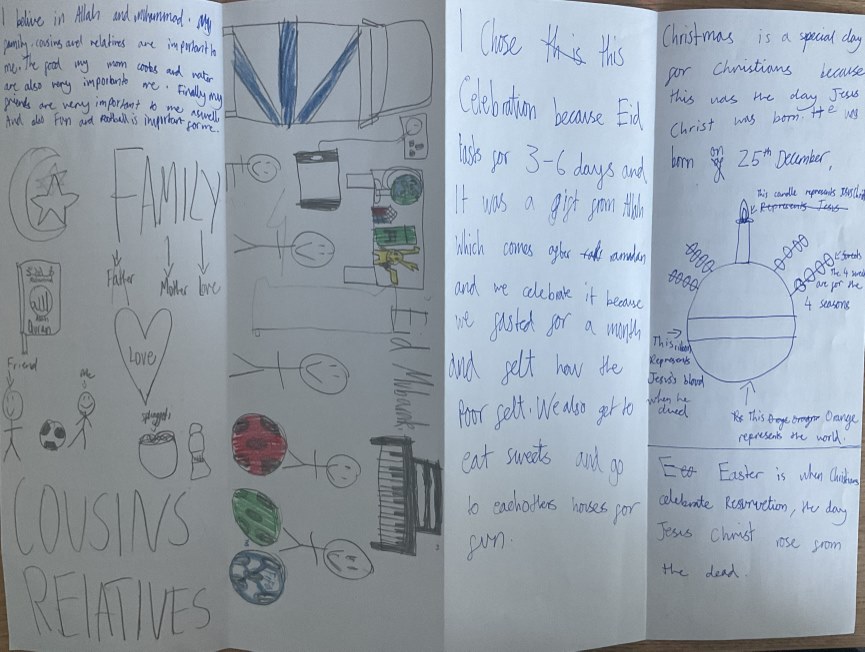 I belive in Allah and muhammad. My
family, cousins and relatives are important to
me. The food my mom cooks and water
are also very important to me. Finally my
friends are very important to me aswell
And also Fun and football is important for me.
FAMILY
Father
Mother
Love
Quran
Friend
me
COUSINS
RELATIVES
Eid Mubarak
I Chose this this
Celebration because Eid
lasts for 3-6 days and
It was a gift from Allah
which comes after ramadan
and we celebrate it because
we fasted for a month
and felt how the
Poor felt. We also get to
eat sweets and go
to eachothers houses for
fun.
Christmas is a special day
for Christians because
this was the day Jesus
Christ was born. He was
born on 25th December.
This candle represents Jesus Christ
Represents Jesus
The 4 sweets
are for the
4 seasons
This ribbon
Represents
Jesus's blood
when he
died
This Orange
represents the world.
Easter is when Christians
celebrate Resurrection, the day
Jesus Christ rose from
the dead.